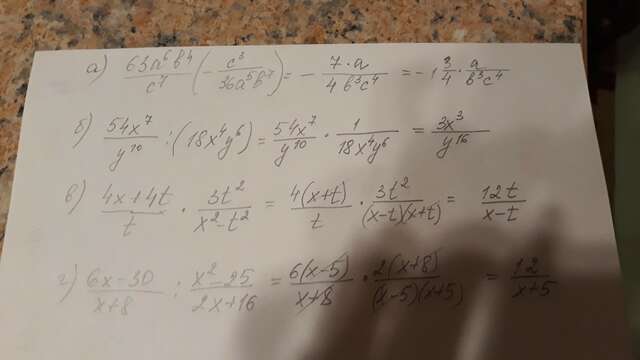 а) 63a⁶b⁴/c⁷ (− c³/36a⁵b⁷) = − 7·a/4b³c⁴ = −1 3/4 · a/b³c⁴
б) 54x⁷/y¹⁰ : (18x⁴y⁶) = 54x⁷/y¹⁰ · 1/18x⁴y⁶ = 3x³/y¹⁶
в) 4x+4t/t · 3t²/x²−t² = 4(x+t)/t · 3t²/(x−t)(x+t) = 12t/x−t
г) 6x−30/x+8 : x²−25/2x+16 = 6(x−5)/x+8 · 2(x+8)/(x−5)(x+5) = 12/x+5